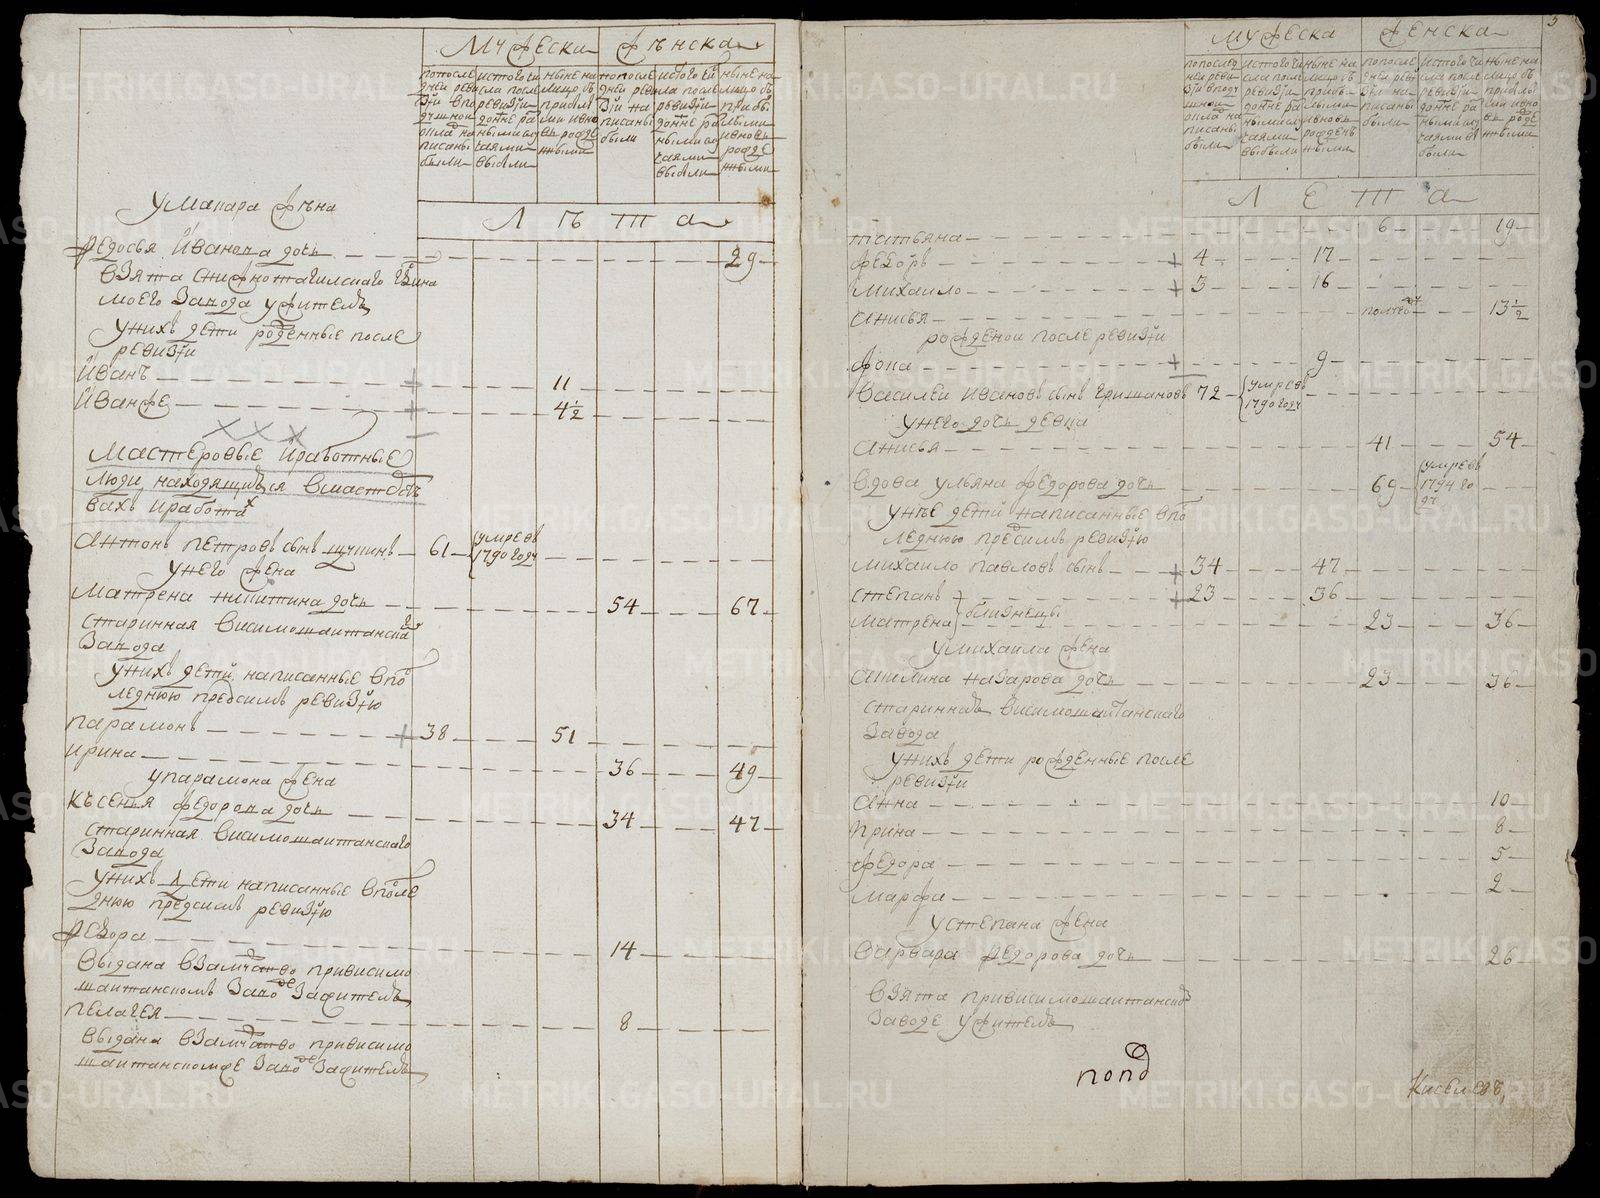 Мужеска
Фѣнска
попосле
дней реви
зіи впо
душной
окладъ на
писаны
были
истого чи
сла после
ревизіи
донне ра
ными слу
чаями
выбыли
ныне на
лицо съ
прибы
лыми и вно
вь рожде
нными
попосле
дней реви
зіи на
писаны
были
истого чи
сла после
ревизіи
донне ра
ными слу
чаями
выбыли
ныне на
лицо съ
прибы
лыми
и вновь
рожде
нными
Л ѣ т а
умакара жена
Федосья Иванова дочь 29
взята
моего завода ужителя
унихъ дети роденные после
ревизіи
Иванъ 11
Иванже 4½
Мастеровые иработные
люди находящиеся вмастерст
вахъ иработахъ
Антонъ петровъ сынъ щипинъ 61 умре въ
1790 году
унего жена
Матрена никитина дочь 54 67
старинная висимошайтанскаго
завода
унихъ детй написанные впо
леднюю предсимъ ревизію
парамонъ 38 51
ирина 36 49
упарамона жена
Ксенья федорова дочь 34 47
старинная висимошайтанскаго
завода
унихъ дети написанные впосле
днюю предсимъ ревизію
Федора 14
выдана взамужство привисимо
шайтанскомъ заводе зажителя
пелагея 8
выдана взамужство привисимо
шайтанскомже заводе зажителя
3
Мужеска
Женска
попослед
ней реви
зіи вподу
шной
окладъ на
писаны
были
истого чи
сла после
ревизіи
донне ра
ными слу
чаями
выбыли
ныне на
лицо съ
прибы
лыми
ивновь
рожденъ
ными
попосле
дней реви
зіи на
писаны
были
истого чи
сла после
ревизіи
донне ра
ными слу
чаями вы
были
ныне на
лицо съ
прибылы
ми ивно
вь рожде
нными
Л Е Т А
татьяна 6 19
федоръ 4 17
михаило 3 16
анисья полгода 13½
рожденой после ревизіи
фока 9
Василей Ивановъ сынъ гришановъ 72 умре въ
1790 году
унего дочь девка
Анисья 41 54
вдова ульяна федорова дочь 69 умре въ
1794 го
ду
унее детй написанные впо
леднюю пресимъ ревизію
михаило павловъ сынъ 34 47
степанъ 23 36
близнецы
матрена 23 36
умихаила жена
акилина назарова дочь 23 36
старинная висимошайтанскаго
завода
унихъ дети рожденные после
ревизіи
Анна 10
Ирина 8
федора 5
марфа 2
устепана жена
варвара федорова дочь 26
взята привисимошайтанскомъ
заводе ужителя
попд
Киселевъ,
METRIKI.GASO-URAL.RU